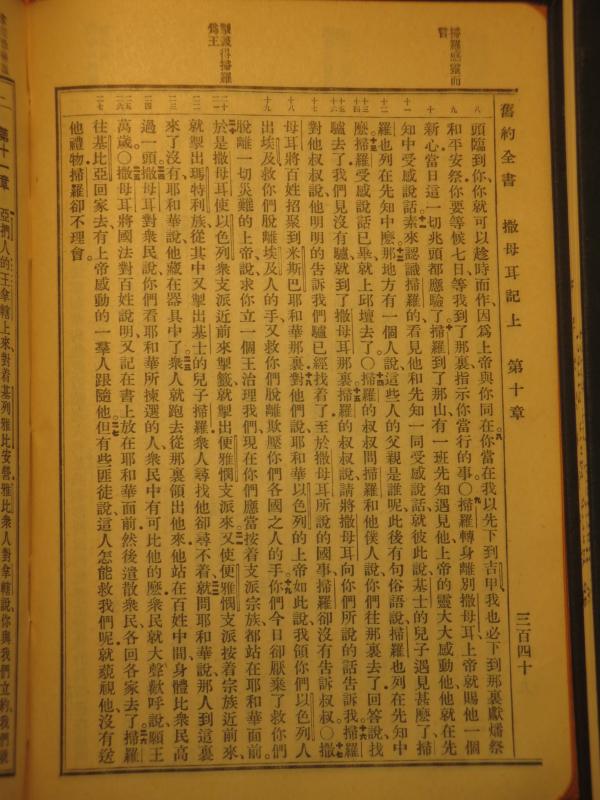 舊約全書 撒母耳記上 第十章 三百四十
掃羅感靈而
頭臨到你、你就可以趁時而作、因爲上帝與你同在。你當在我以先下到吉甲、我也必下到那裏獻燔祭
和平安祭、你要等候七日、等我到了那裏、指示你當行的事。〇掃羅轉身離別撒母耳、上帝就賜他一個
新心、當日這一切兆頭都應驗了。掃羅到了那山、有一班先知遇見他、上帝的靈大大感動他、他就在先
知中受感說話。素來認識掃羅的、看見他和先知一同受感說話、就彼此說、基士的兒子遇見甚麼了、掃
羅也列在先知中麼。那地方有一個人說、這些人的父親是誰呢、此後有句俗語說、掃羅也列在先知中
麼。掃羅受感說話已畢、就上邱壇去了。〇掃羅的叔叔問掃羅和他僕人說、你們往那裏去了、回答說、找
驢去了、我們見沒有驢、就到了撒母耳那裏。掃羅的叔叔說、請將撒母耳向你們所說的話告訴我。掃羅
對他叔叔說、他明明的告訴我們驢已經找着了、至於撒母耳所說的國事、掃羅卻沒有告訴叔叔。〇撒
母耳將百姓招聚到米斯巴耶和華那裏。對他們說、耶和華以色列的上帝如此說、我領你們以色列人
出埃及、救你們脫離埃及人的手、又救你們脫離欺壓你們各國之人的手。你們今日卻厭棄了救你們
脫離一切災難的上帝、說、求你立一個王治理我們、現在你們應當按着支派、宗族、都站在耶和華面前。
掣籤得掃羅
爲王
於是撒母耳使以色列衆支派近前來掣籤、就掣出便雅憫支派來。又使便雅憫支派按着宗族近前來、
就掣出瑪特利族、從其中又掣出基士的兒子掃羅、衆人尋找他、卻尋不着。就問耶和華說、那人到這裏
來了沒有、耶和華說、他藏在器具中了。衆人就跑去從那裏領出他來、他站在百姓中間、身體比衆民高
過一頭。撒母耳對衆民說、你們看耶和華所揀選的人、衆民中有可比他的麼、衆民就大聲歡呼說、願王
萬歲。〇撒母耳將國法對百姓說明、又記在書上、放在耶和華面前、然後遣散衆民、各回各家去了。掃羅
往基比亞回家去、有上帝感動的一羣人跟隨他。但有些匪徒說、這人怎能救我們呢、就藐視他、沒有送
他禮物、掃羅卻不理會。
第十一章